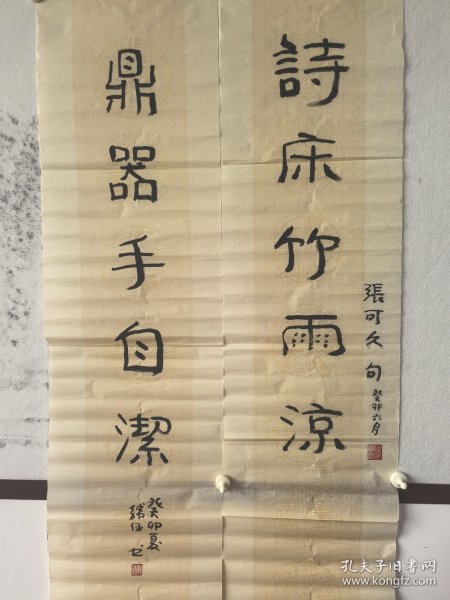 詩床竹雨涼
張可久句
癸卯六月
鼎器手自潔
癸卯夏
孔夫子旧书网
www.kongfz.com